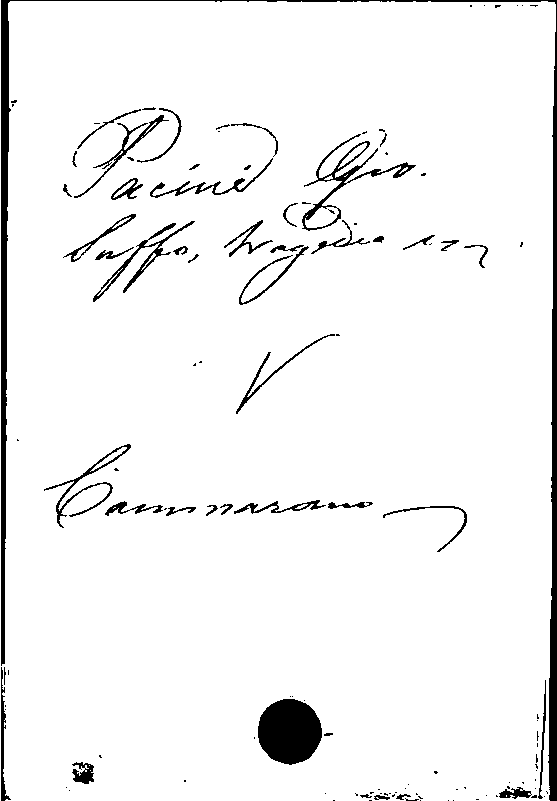 Pacini Gio.
Saffo, tragedia
V
Cammarano